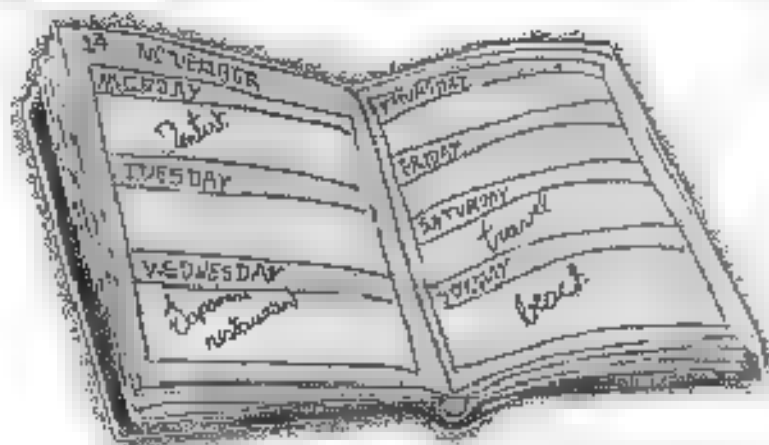 14 NOVEMBER
MONDAY
Dentist
TUESDAY
WEDNESDAY
Japanese
restaurant
THURSDAY
FRIDAY
SATURDAY
travel
SUNDAY
beach